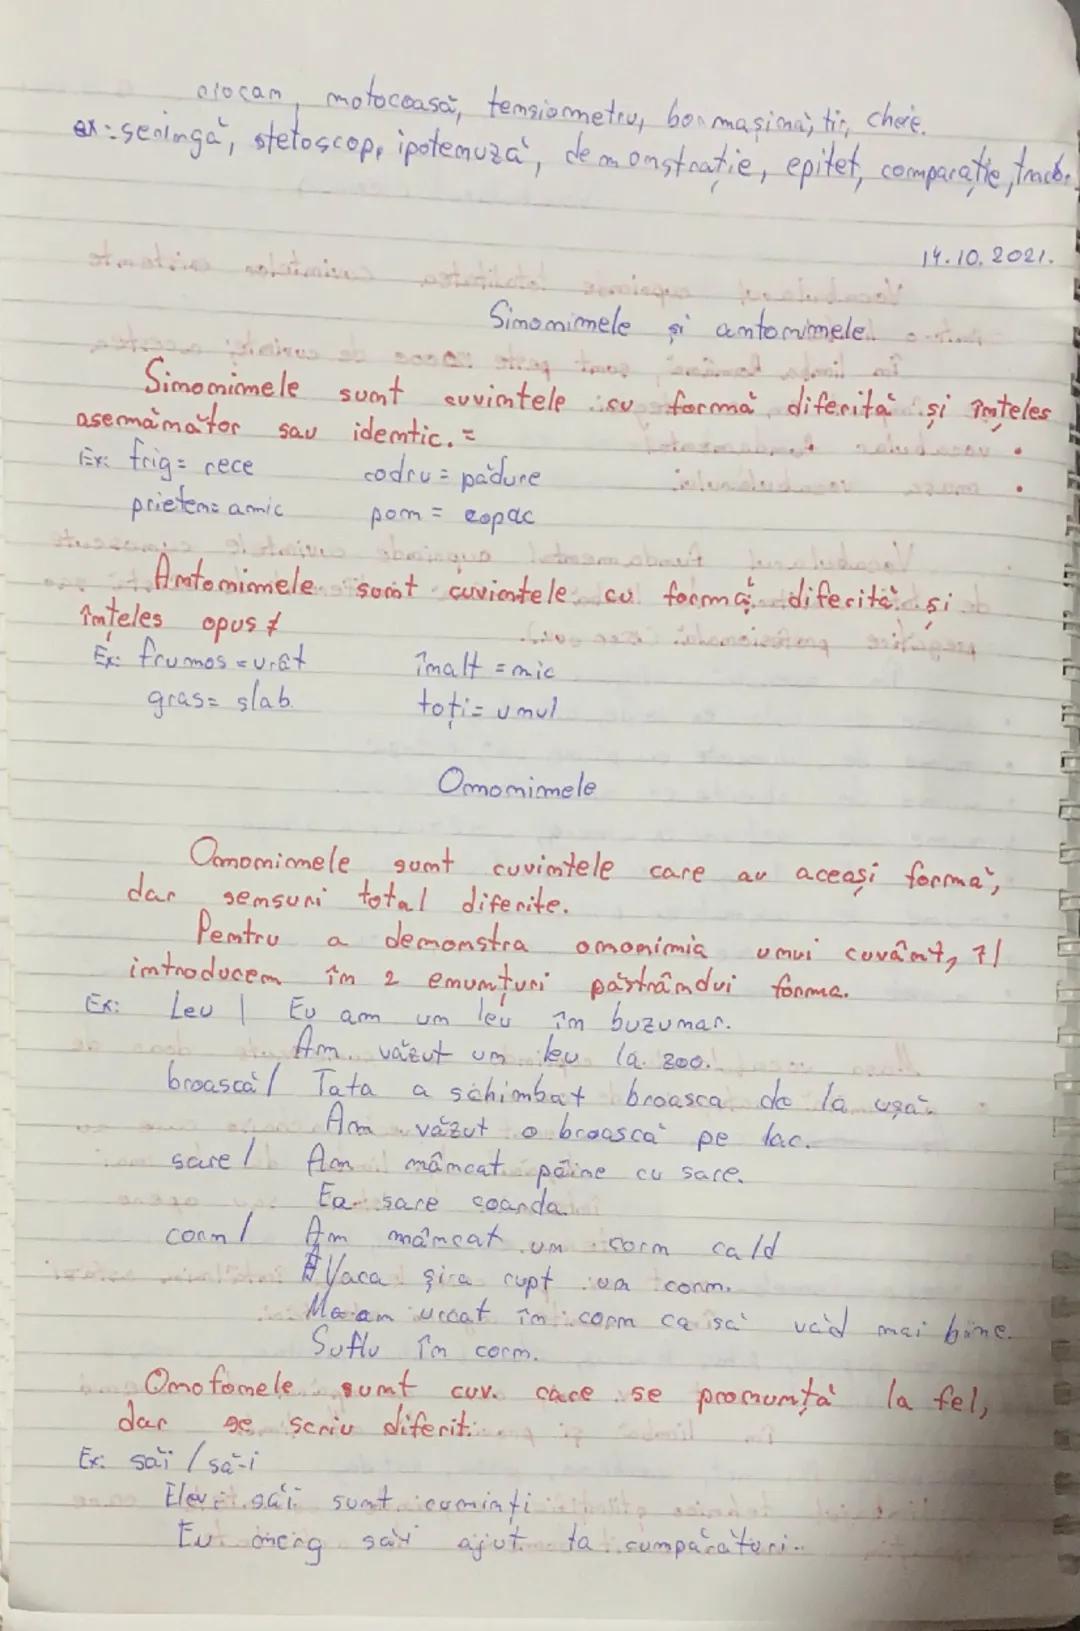 ciocan, motocoasă, tensiometru, bormașina, tir, cheie.
ex: seringă, stetoscop, ipotenuză, demonstratie, epitet, comparație,
14.10.2021.
Sinonimele și antonimele.
Sinonimele sunt cuvintele cu formă diferită și înțeles
asemămător sau identic. =
Ex: frig = rece codru = pădure
prieten = amic pom = copac
Antonimele sunt cuvintele cu formă diferită și
înțeles opus ≠
Ex: frumos = urât înalt = mic
gras = slab toți = unul
Omonimele
Omonimele sunt cuvintele care au aceași formă,
dar sensuri total diferite.
Pentru a demonstra omonimia unui cuvânt, îl
introducem în 2 enunțuri păstrându-i forma.
Ex: Leu | Eu am un leu în buzunar.
Am văzut un leu la zoo.
broască / Tata a schimbat broasca de la ușă.
Am văzut o broască pe lac.
sare / Am mâncat pâine cu sare.
Ea sare coarda.
corn / Am mâncat un corn cald
Vaca șira rupt un corn.
Ma am urcat în corn ca să văd mai bine.
Suflu în corn.
Omofonele sunt cuv. care se pronunță la fel,
dar se scriu diferit.
Ex: săi / să-i
Elevii săi sunt cuminți
Eu merg să-i ajut la cumpărături.